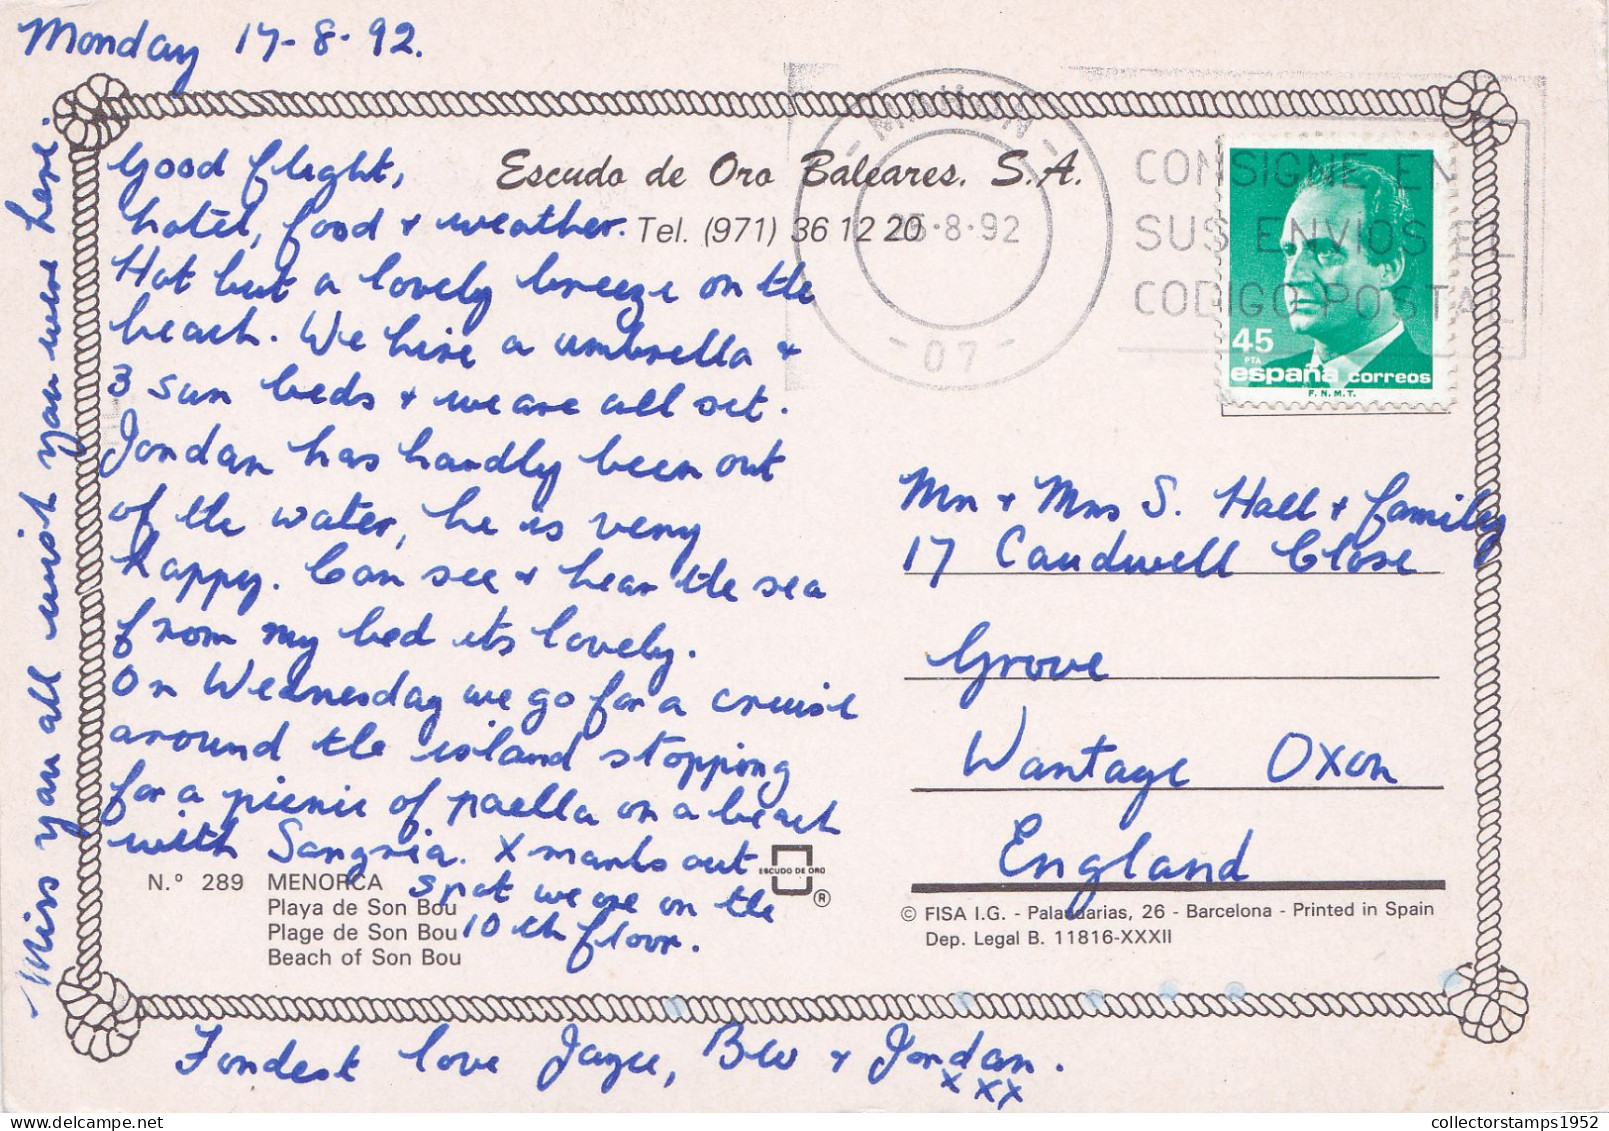 Monday 17-8-92.
Good flight,
hotel, food + weather.
Hot but a lovely breeze on the
beach. We hire a umbrella +
3 sun beds + we are all set.
Jordan has hardly been out
of the water, he is very
happy. Can see + hear the sea
from my bed its lovely.
On Wednesday we go for a cruise
around the island stopping
for a picnic of paella on a beach
with Sangria. X marks out
spot we are on the
10th floor.
Miss you all wish you were here.
Fondest love Joyce, Bev + Jordan.
x xx
Escudo de Oro Baleares. S.A.
Tel. (971) 36 12 20
MAHON
25-8-92
- 07 -
CONSIGNE EN
SUS ENVIOS EL
CODIGO POSTAL
45
PTA
españa correos
F.N.M.T.
Mr + Mrs S. Hall + family
17 Caudwell Close
Grove
Wantage Oxon
England
N.° 289 MENORCA
Playa de Son Bou
Plage de Son Bou
Beach of Son Bou
ESCUDO DE ORO
®
© FISA I.G. - Palaudarias, 26 - Barcelona - Printed in Spain
Dep. Legal B. 11816-XXXII
collectorstamps1952